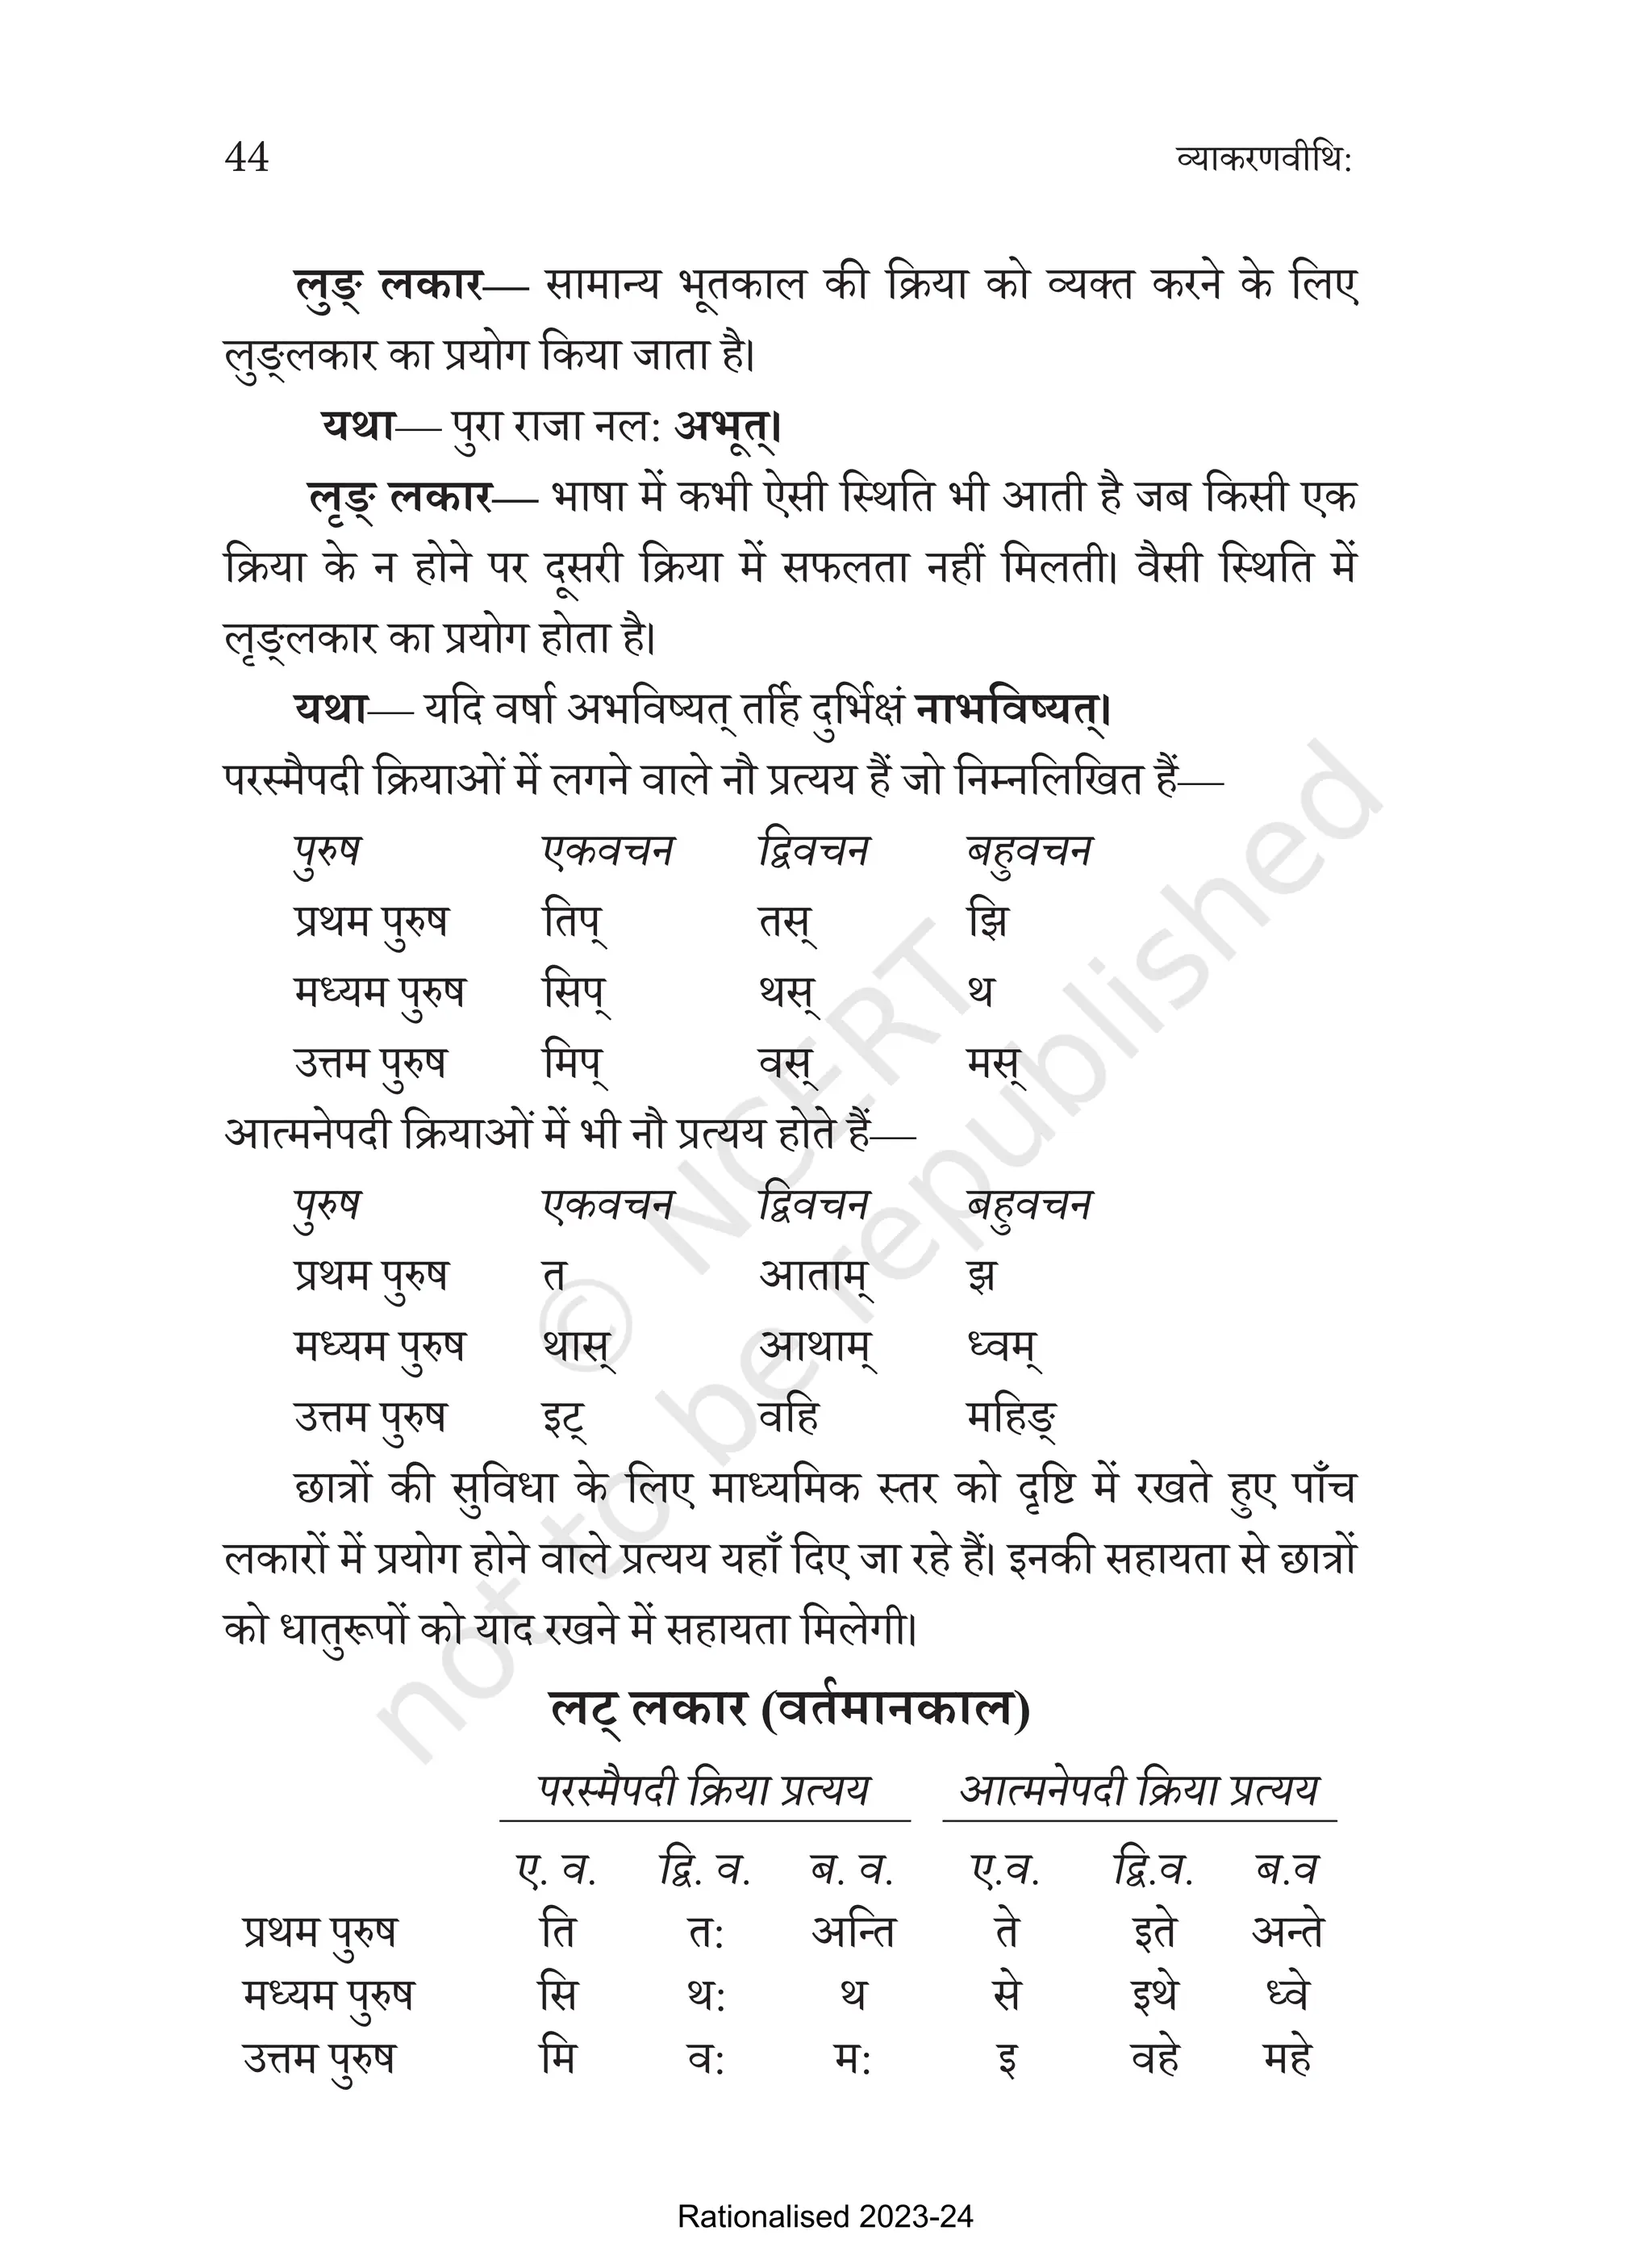 44 व्याकरणवीथि:
लुङ् लकार— सामान्य भूतकाल की क्रिया को व्यक्त करने के लिए
लुङ्लकार का प्रयोग किया जाता है।
यथा— पुरा राजा नल: अभूत्।
लृङ् लकार— भाषा में कभी ऐसी स्थिति भी आती है जब किसी एक
क्रिया के न होने पर दूसरी क्रिया में सफलता नहीं मिलती। वैसी स्थिति में
लृङ्लकार का प्रयोग होता है।
यथा— यदि वर्षा अभविष्यत् तर्हि दुर्भिक्षं नाभविष्यत्।
परस्मैपदी क्रियाओं में लगने वाले नौ प्रत्यय हैं जो निम्नलिखित हैं—
पुरुष एकवचन द्विवचन बहुवचन
प्रथम पुरुष तिप् तस् झि
मध्यम पुरुष सिप् थस् थ
उत्तम पुरुष मिप् वस् मस्
आत्मनेपदी क्रियाओं में भी नौ प्रत्यय होते हैं—
पुरुष एकवचन द्विवचन बहुवचन
प्रथम पुरुष त आताम् झ
मध्यम पुरुष थास् आथाम् ध्वम्
उत्तम पुरुष इट् वहि महिङ्
छात्रों की सुविधा के लिए माध्यमिक स्तर को दृष्टि में रखते हुए पाँच
लकारों में प्रयोग होने वाले प्रत्यय यहाँ दिए जा रहे हैं। इनकी सहायता से छात्रों
को धातुरूपों को याद रखने में सहायता मिलेगी।
लट् लकार (वर्तमानकाल)
परस्मैपदी क्रिया प्रत्यय आत्मनेपदी क्रिया प्रत्यय
ए. व. द्वि. व. ब. व. ए.व. द्वि.व. ब.व
प्रथम पुरुष ति त: अन्ति ते इते अन्ते
मध्यम पुरुष सि थ: थ से इथे ध्वे
उत्तम पुरुष मि व: म: इ वहे महे
© NCERT
not to be republished
Rationalised 2023-24